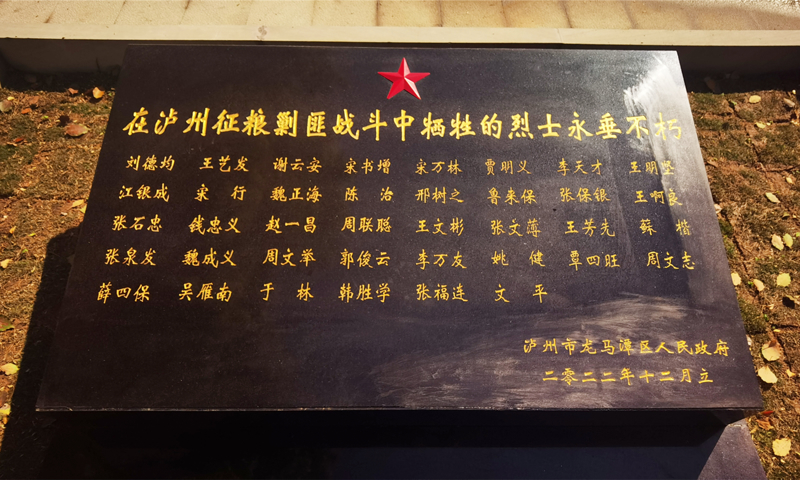 在泸州征粮剿匪战斗中牺牲的烈士永垂不朽
刘德均 王艺发 谢云安 宋书增 宋万林 贾明义 李天才 王明坚
江银成 宋行 魏正海 陈治 邢树之 鲁来保 张保银 王啊良
张石忠 钱忠义 赵一昌 周联聪 王文彬 张文薄 王芳先 蘇楷
张泉发 魏成义 周文举 郭俊云 李万友 姚健 覃四旺 周文志
薛四保 吴雁南 于林 韩胜学 张福连 文平
泸州市龙马潭区人民政府
二零二二年十二月立